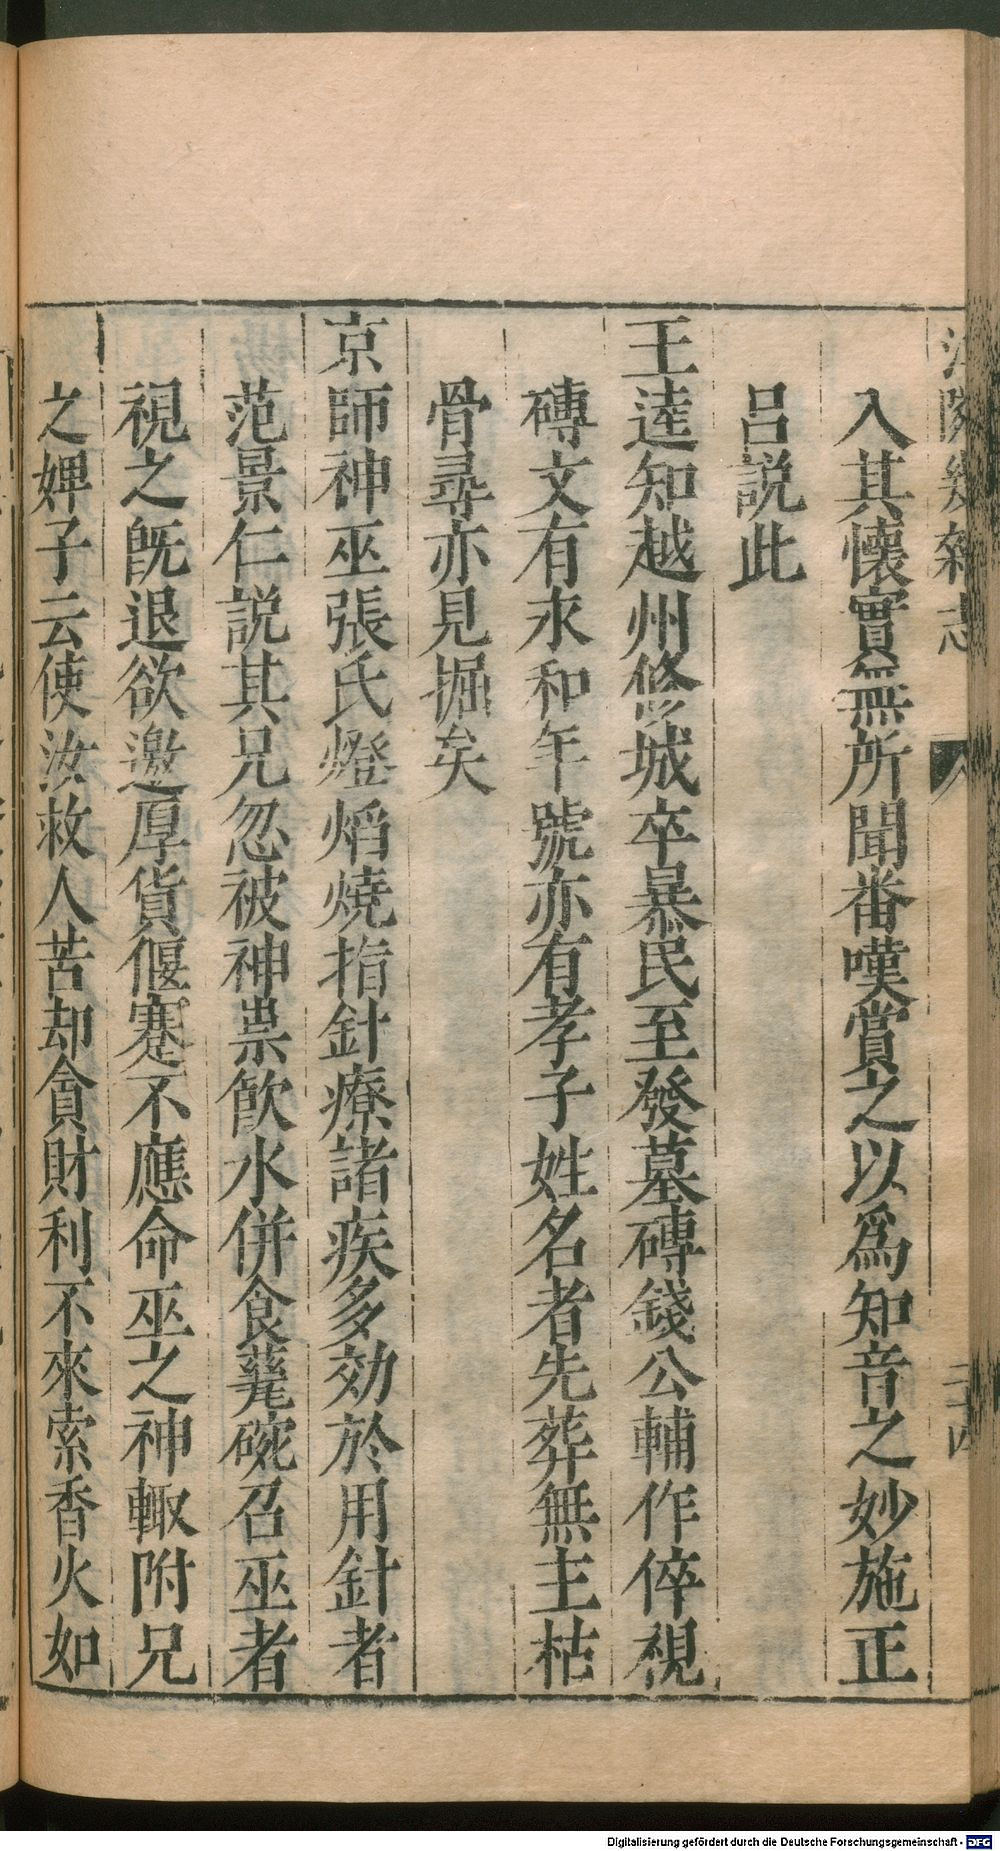 江隣幾雜志
二十四
入其懷實無所聞番嘆賞之以爲知音之妙施正
呂説此
王逵知越州修城卒暴民至發墓磚錢公輔作倅視
磚文有永和年號亦有孝子姓名者先葬無主枯
骨尋亦見掘矣
京師神巫張氏燈熖燒指針療諸疾多効於用針者
范景仁説其兄忽被神祟飮水併食甕碗召巫者
視之旣退欲邀厚貨偃蹇不應命巫之神輙附兄
之婢子云使汝救人苦却貪財利不來索香火如
Digitalisierung gefördert durch die Deutsche Forschungsgemeinschaft - DFG